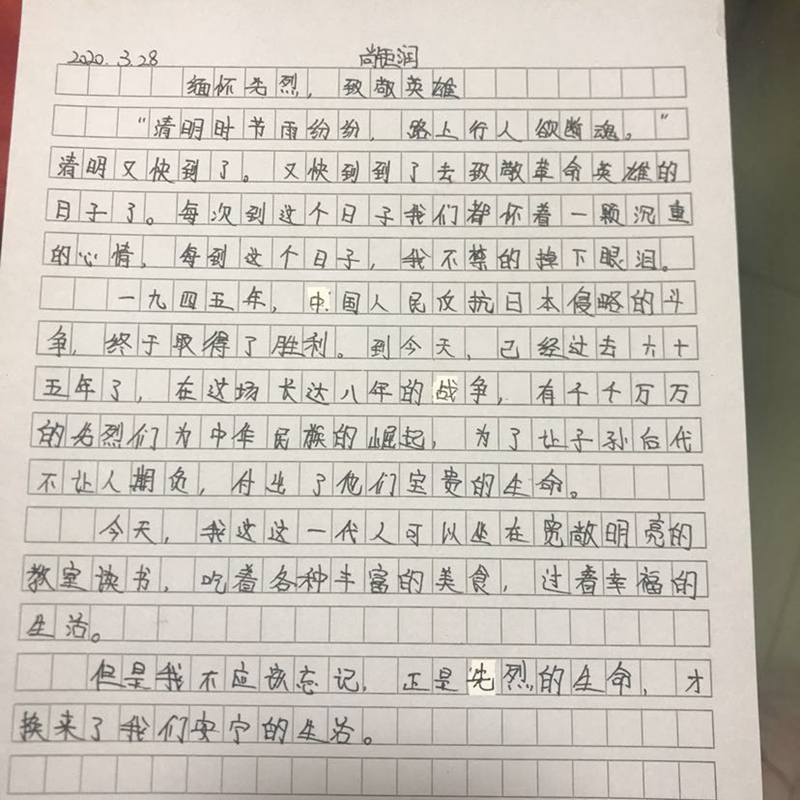 2020.3.28 尚钜润
缅怀先烈，致敬英雄
“清明时节雨纷纷，路上行人欲断魂。”
清明又快到了。又快到到了去致敬革命英雄的
日子了。每次到这个日子我们都怀着一颗沉重
的心情，每到这个日子，我不禁的掉下眼泪。
一九四五年，中国人民反抗日本侵略的斗
争，终于取得了胜利。到今天，己经过去六十
五年了，在这场长达八年的战争，有千千万万
的先烈们为中华民族的崛起，为了让子孙后代
不让人期负，付出了他们宝贵的生命。
今天，我这这一代人可以坐在宽敞明亮的
教室读书，吃着各种丰富的美食，过着幸福的
生活。
但是我不应该忘记，正是先烈的生命，才
换来了我们安宁的生活。